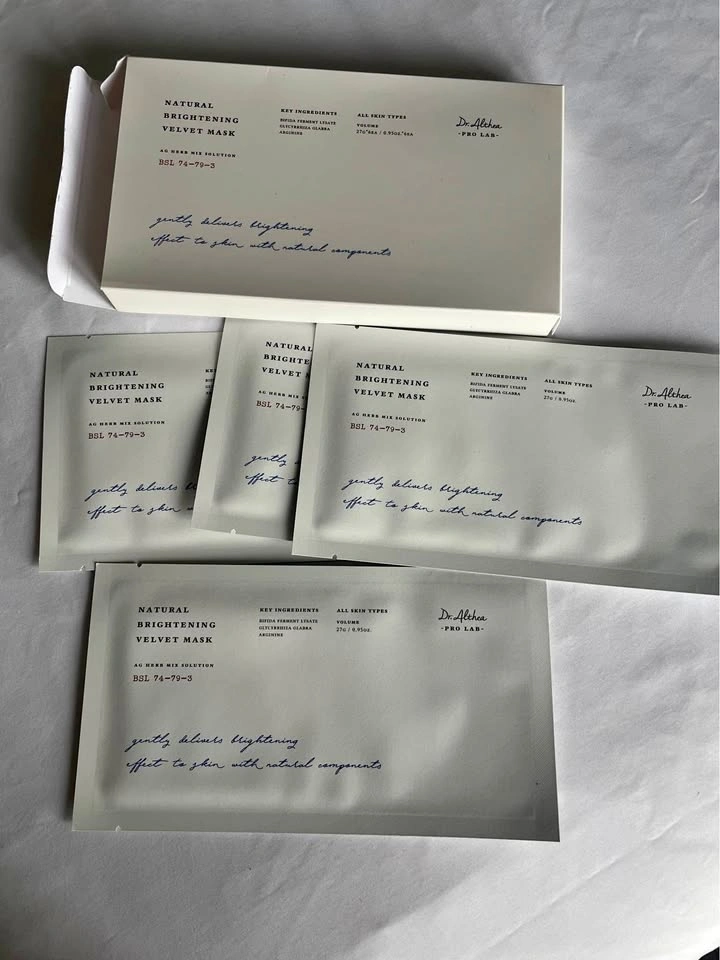 NATURAL
BRIGHTENING
VELVET MASK
AG HERB MIX SOLUTION
BSL 74-79-3
KEY INGREDIENTS
BIFIDA FERMENT LYSATE
GLYCYRRHIZA GLABRA
ARGININE
ALL SKIN TYPES
VOLUME
Dr. Althea
-PRO LAB-
gently delivers brightening
effect to skin with natural components
NATURAL
BRIGHTENING
VELVET MASK
AG HERB MIX SOLUTION
BSL 74-79-3
gently delivers
effect to skin
NATURAL
BRIGHTE
VELVET
AG HERB MIX
BSL 74-79-
gently
effect to
NATURAL
BRIGHTENING
VELVET MASK
AG HERB MIX SOLUTION
BSL 74-79-3
KEY INGREDIENTS
BIFIDA FERMENT LYSATE
GLYCYRRHIZA GLABRA
ARGININE
ALL SKIN TYPES
VOLUME
27G / 0.95oz.
Dr. Althea
-PRO LAB-
gently delivers brightening
effect to skin with natural components
NATURAL
BRIGHTENING
VELVET MASK
AG HERB MIX SOLUTION
BSL 74-79-3
KEY INGREDIENTS
BIFIDA FERMENT LYSATE
GLYCYRRHIZA GLABRA
ARGININE
ALL SKIN TYPES
VOLUME
27G / 0.95oz.
Dr. Althea
-PRO LAB-
gently delivers brightening
effect to skin with natural components